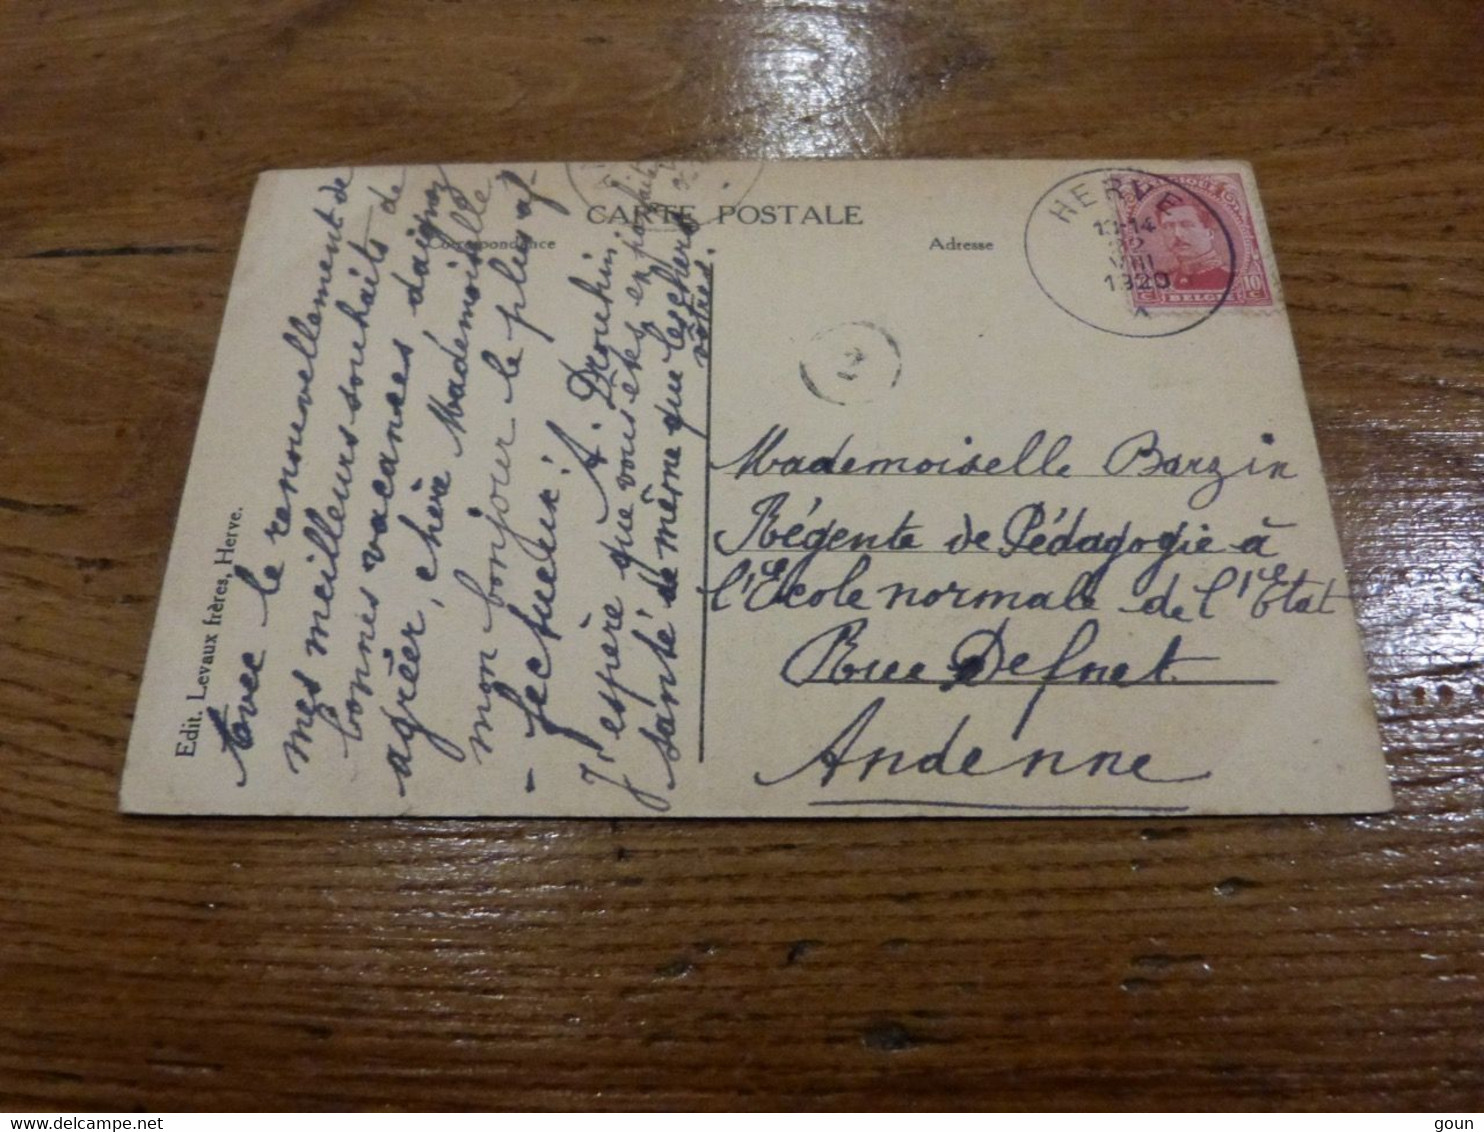 CARTE POSTALE
Correspondance
Adresse
HERVE
13-14
22
VIII
1920
BELGIË
10
C
C
2
Avec le renouvellement de
mes meilleurs souhaits de
bonnes vacances daignez
agréer, chère Mademoiselle
mon bonjour le plus af-
-fectueux!
A. Drouhin
J'espère que vous êtes en parfaite
santé de même que les chers
vôtres.
Mademoiselle Barzin
Régente de Pédagogie à
l'Ecole normale de l'Etat
Rue Defnet.
Andenne
Edit. Levaux frères, Herve.
goun